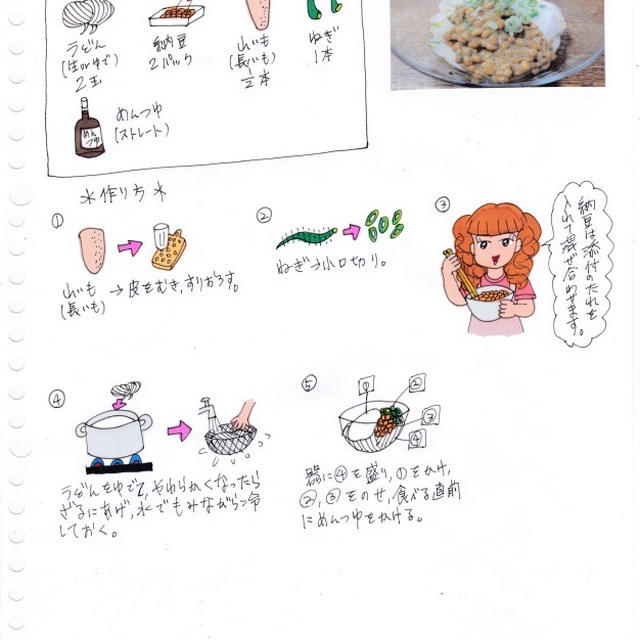 うどん
(生orゆで)
2玉
納豆
2パック
山いも
(長いも)
1/2本
ねぎ
1本
めんつゆ
めんつゆ
(ストレート)
*作り方*
①
山いも
(長いも)
→皮をむき、すりおろす。
②
ねぎ→小口切り。
③
納豆は添付のたれを
入れて混ぜ合わせます。
④
うどんをゆでて、やわらかくなったら
ざるにあげ、水でもみながら冷
しておく。
⑤
①
②
③
④
器に④を盛り、①をかけ、
②、③をのせ、食べる直前
にめんつゆをかける。